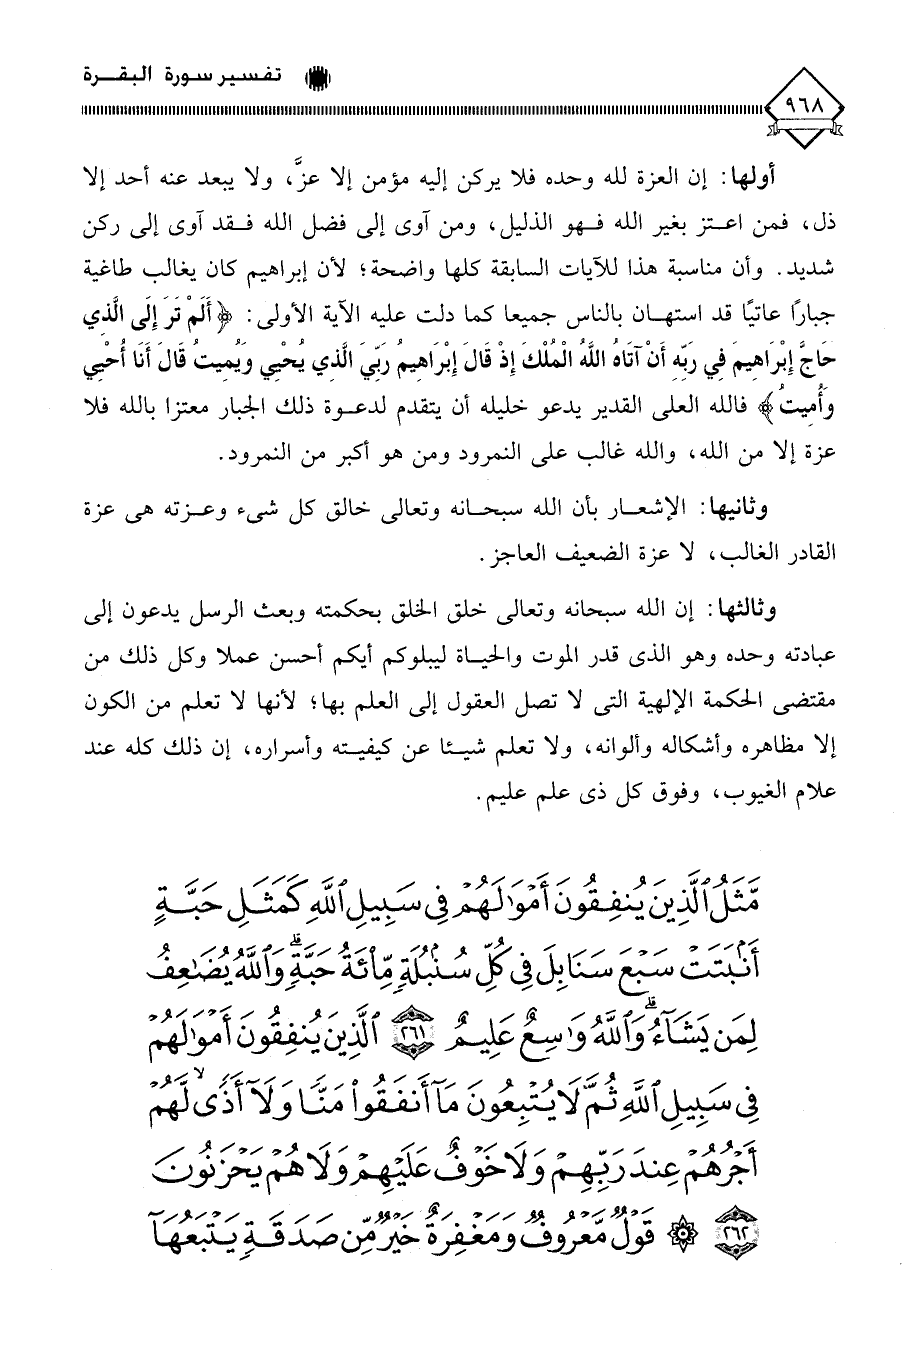 تفسير سورة البقرة
٩٦٨
أولها: إن العزة لله وحده فلا يركن إليه مؤمن إلا عزَّ، ولا يبعد عنه أحد إلا
ذل، فمن اعتز بغير الله فهو الذليل، ومن آوى إلى فضل الله فقد آوى إلى ركن
شديد. وأن مناسبة هذا للآيات السابقة كلها واضحة؛ لأن إبراهيم كان يغالب طاغية
جبارًا عاتيًا قد استهان بالناس جميعا كما دلت عليه الآية الأولى: ﴿أَلَمْ تَرَ إِلَى الَّذِي
حَاجَّ إِبْرَاهِيمَ فِي رَبِّهِ أَنْ آتَاهُ اللَّهُ الْمُلْكَ إِذْ قَالَ إِبْرَاهِيمُ رَبِّيَ الَّذِي يُحْيِي وَيُمِيتُ قَالَ أَنَا أُحْيِي
وَأُمِيتُ﴾ فالله العلى القدير يدعو خليله أن يتقدم لدعوة ذلك الجبار معتزا بالله فلا
عزة إلا من الله، والله غالب على النمرود ومن هو أكبر من النمرود.
وثانيها: الإشعار بأن الله سبحانه وتعالى خالق كل شىء وعزته هى عزة
القادر الغالب، لا عزة الضعيف العاجز.
وثالثها: إن الله سبحانه وتعالى خلق الخلق بحكمته وبعث الرسل يدعون إلى
عبادته وحده وهو الذى قدر الموت والحياة ليبلوكم أيكم أحسن عملا وكل ذلك من
مقتضى الحكمة الإلهية التى لا تصل العقول إلى العلم بها؛ لأنها لا تعلم من الكون
إلا مظاهره وأشكاله وألوانه، ولا تعلم شيئا عن كيفيته وأسراره، إن ذلك كله عند
علام الغيوب، وفوق كل ذى علم عليم.
مَّثَلُ ٱلَّذِينَ يُنفِقُونَ أَمْوَٰلَهُمْ فِى سَبِيلِ ٱللَّهِ كَمَثَلِ حَبَّةٍ
أَنۢبَتَتْ سَبْعَ سَنَابِلَ فِى كُلِّ سُنۢبُلَةٍ مِّا۟ئَةُ حَبَّةٍ ۗ وَٱللَّهُ يُضَٰعِفُ
لِمَن يَشَآءُ ۗ وَٱللَّهُ وَٰسِعٌ عَلِيمٌ ٢٦١ ٱلَّذِينَ يُنفِقُونَ أَمْوَٰلَهُمْ
فِى سَبِيلِ ٱللَّهِ ثُمَّ لَا يُتْبِعُونَ مَآ أَنفَقُوا۟ مَنًّا وَلَآ أَذًى ۙ لَّهُمْ
أَجْرُهُمْ عِندَ رَبِّهِمْ وَلَا خَوْفٌ عَلَيْهِمْ وَلَا هُمْ يَحْزَنُونَ
٢٦٢ ۞ قَوْلٌ مَّعْرُوفٌ وَمَغْفِرَةٌ خَيْرٌ مِّن صَدَقَةٍ يَتْبَعُهَآ